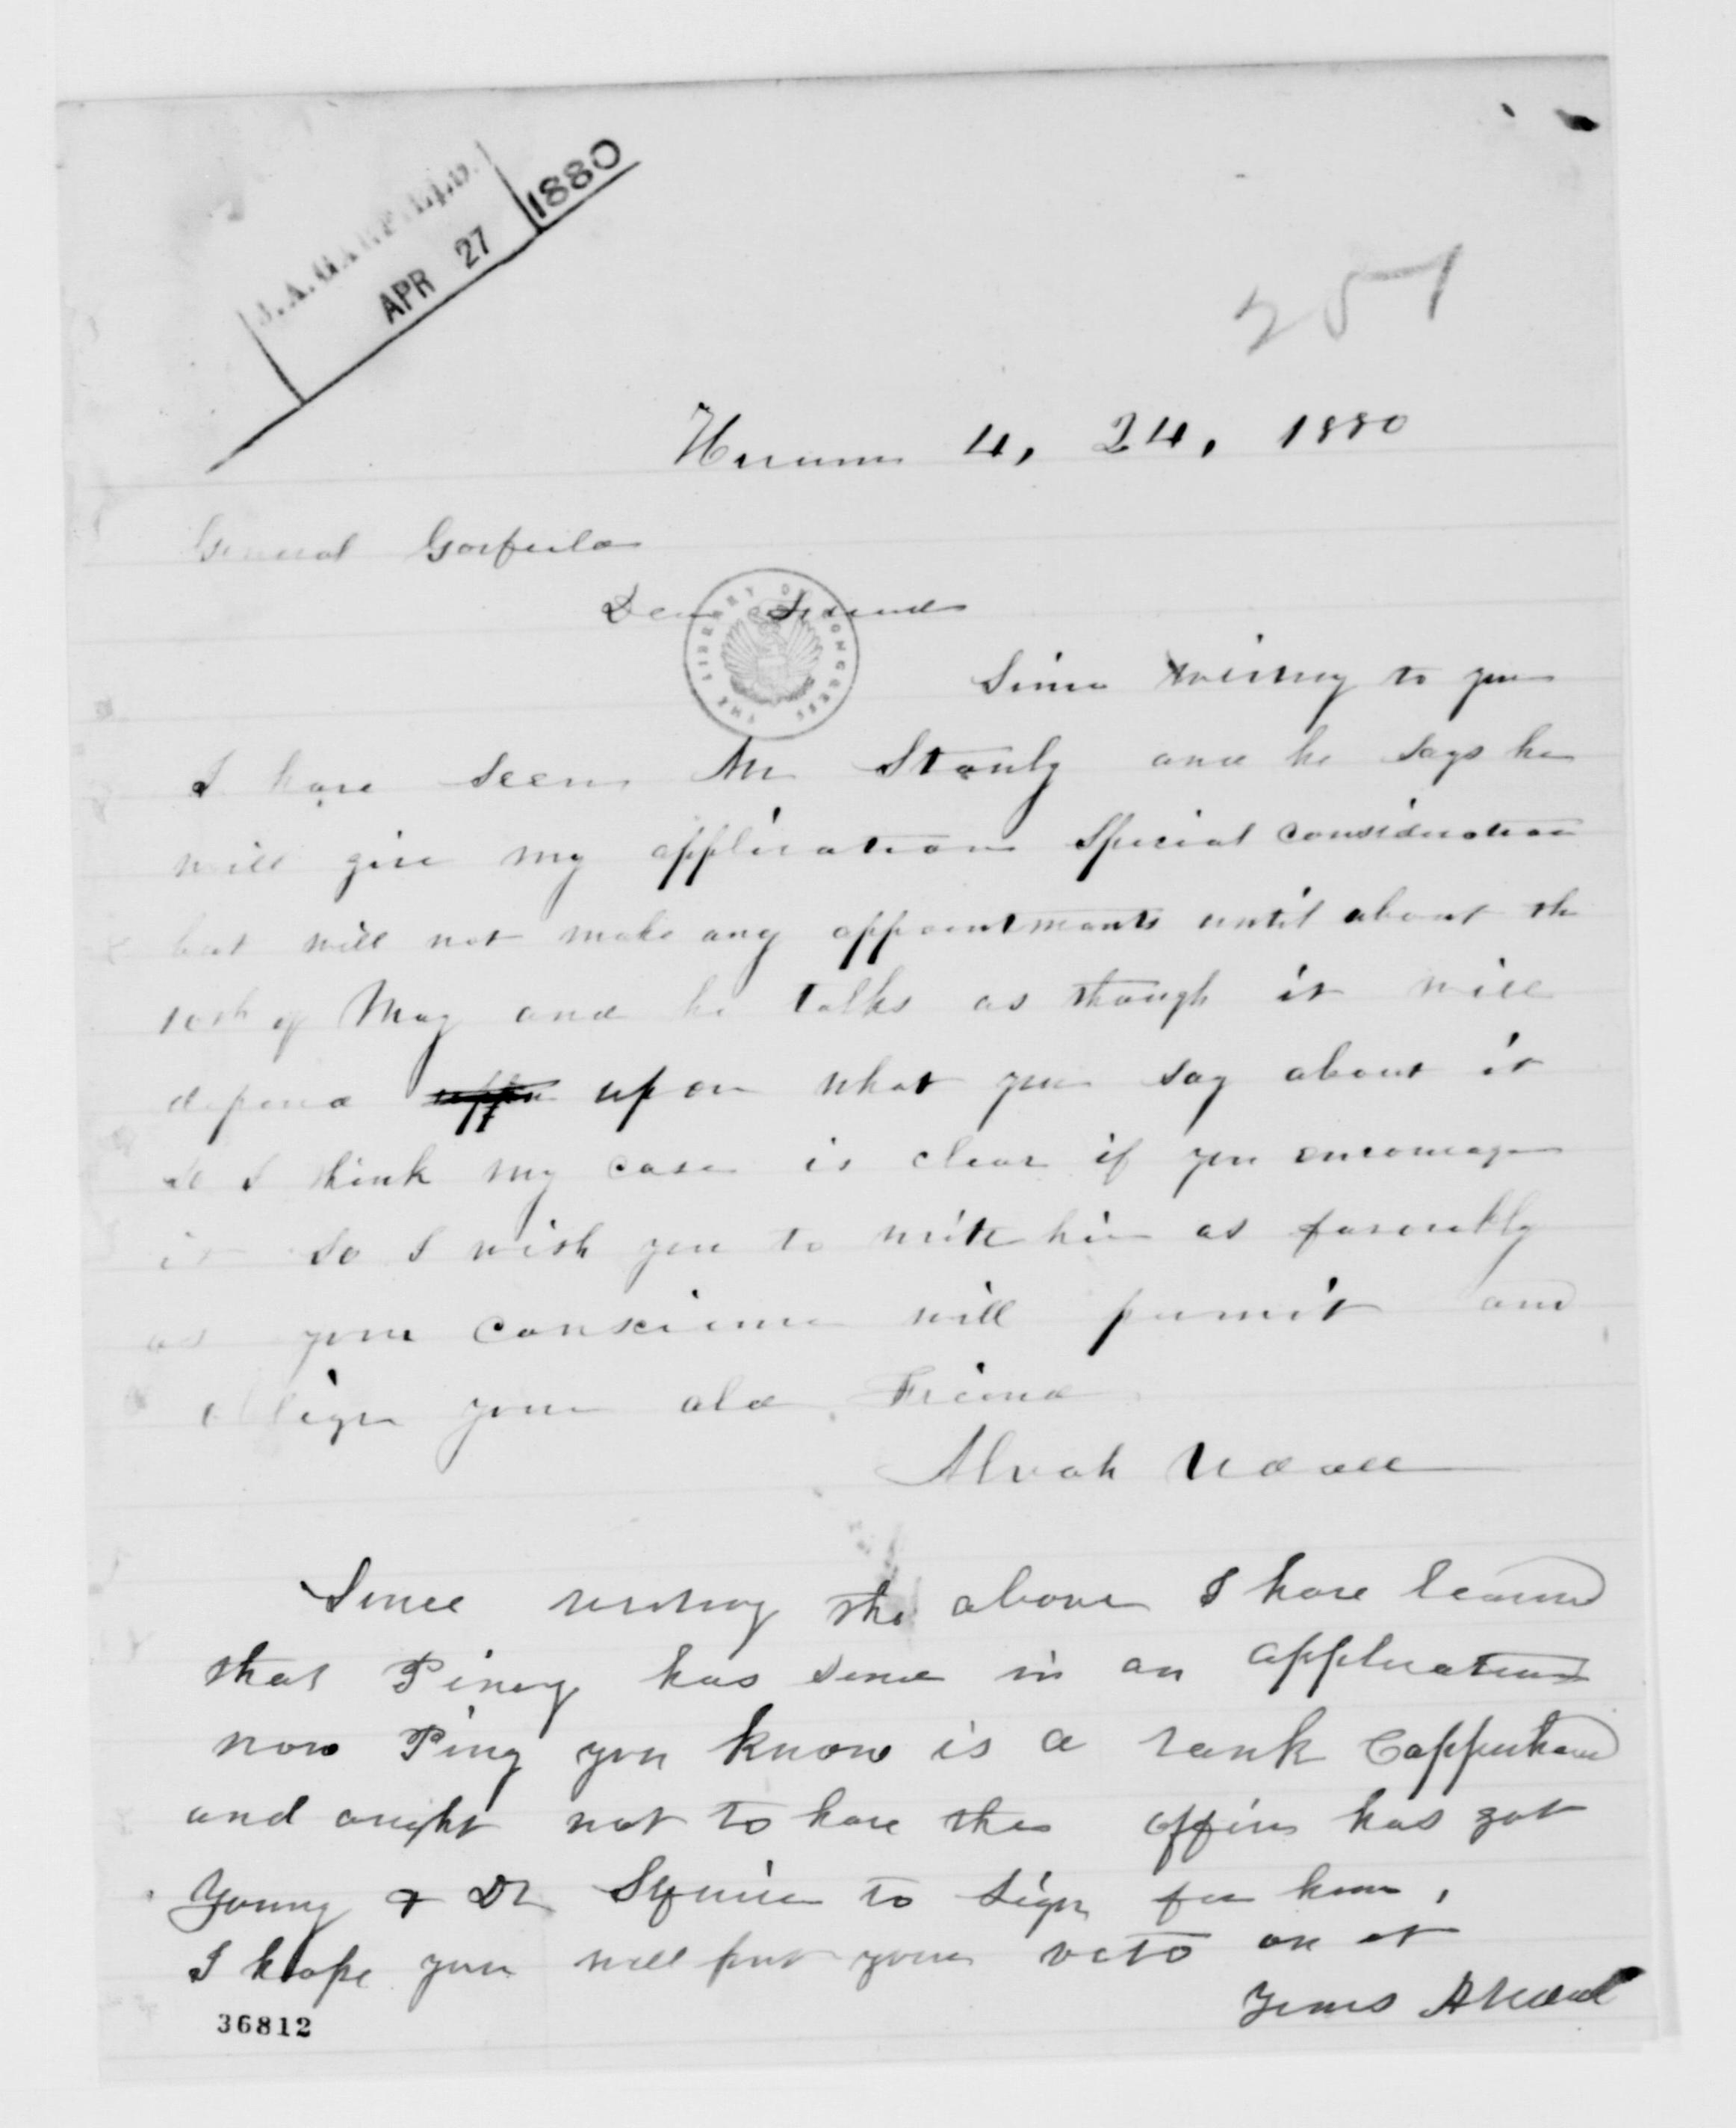 J. A. GARFIELD.
APR 27 1880
257
Hiram 4, 24, 1880
General Garfield
Dear Friend
THE LIBRARY OF CONGRESS
Since writing to you
I have seen Mr Stanly and he says he
will give my application special consideration
but will not make any appointments until about the
10th of May and he talks as though it will
depend upon what you say about it
so I think my case is clear if you encourage
it So I wish you to write him as favorably
as your conscience will permit and
oblige your old Friend
Alvah Udall
Since writing the above I have learned
that Piney has send in an application
now Piny you know is a rank Copperhead
and ought not to have the office has got
Young & Dr Squire to sign for him,
I hope you will put your veto on it
Yours A Udall
36812